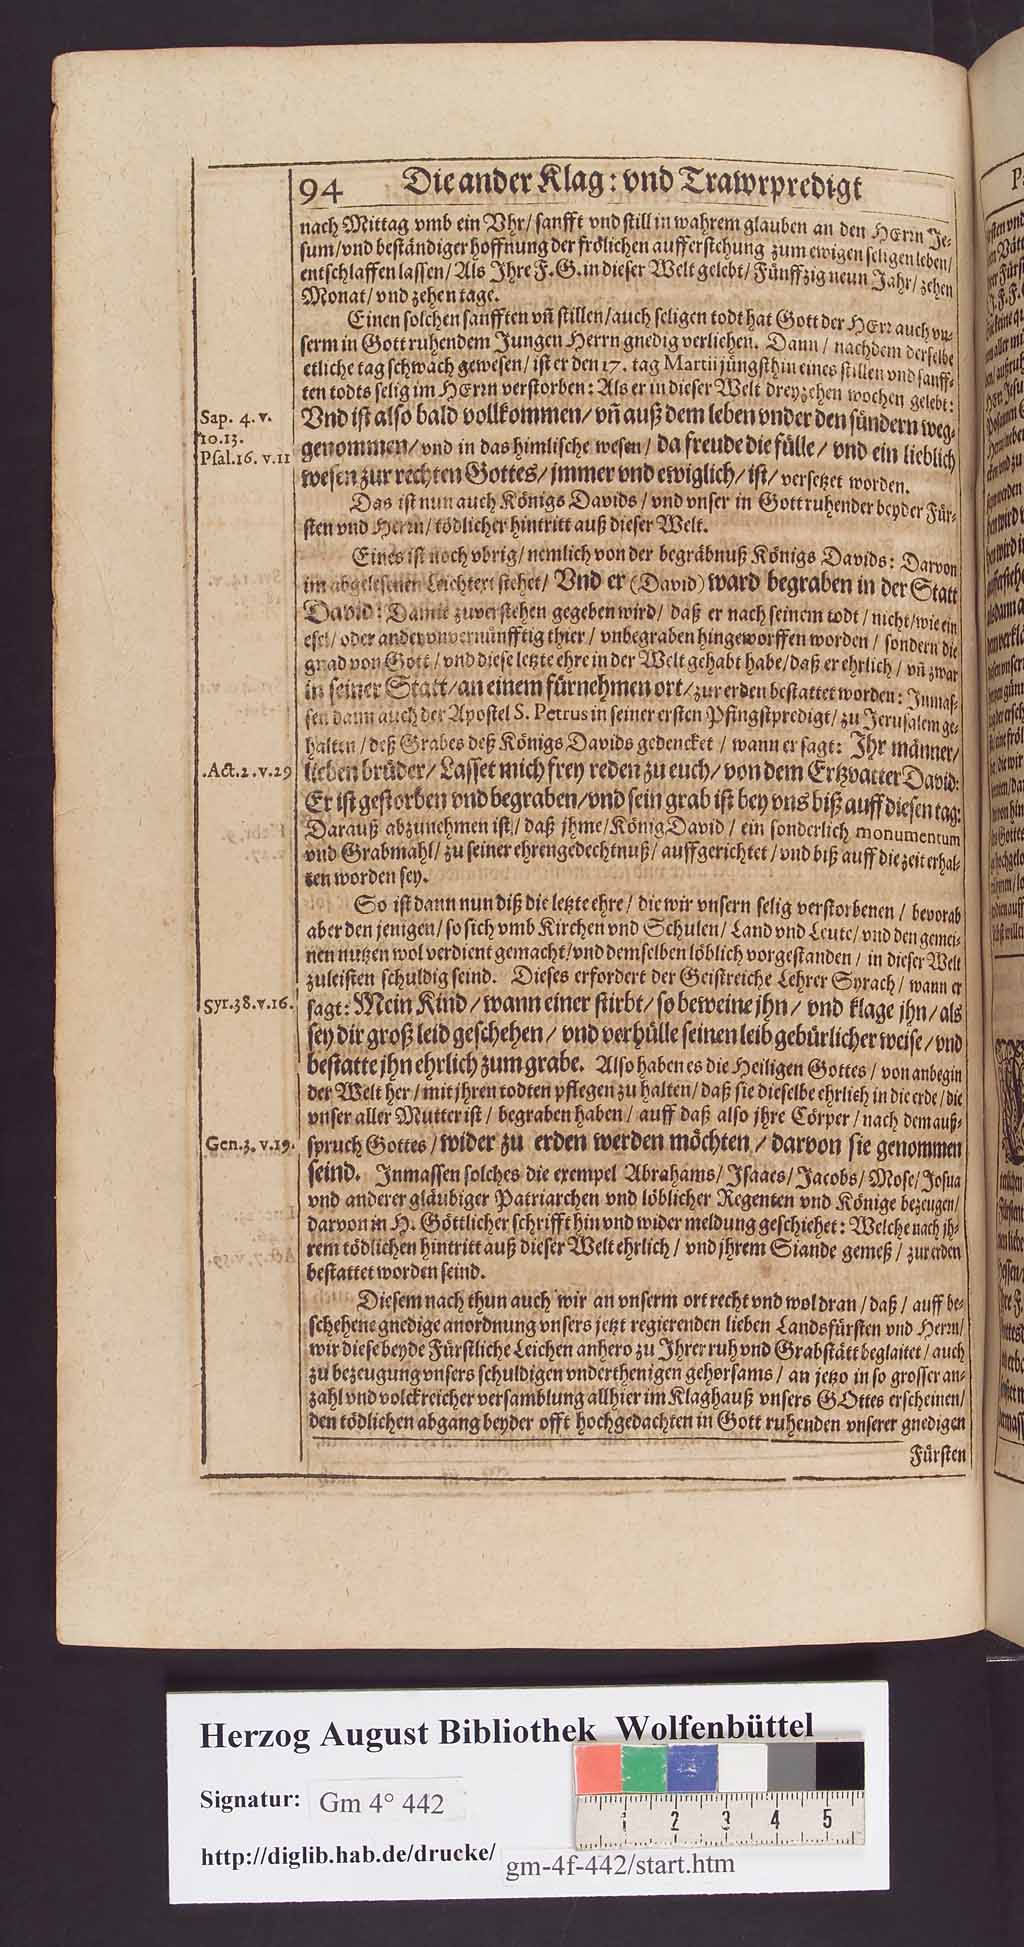 94 Die ander Klag: vnd Trawrpredigt
nach Mittag vmb ein Vhr/ sanfft vnd still in wahrem glauben an den HErrn Je-
sum/ vnd beständiger hoffnung der frölichen aufferstehung zum ewigen seligen leben/
entschlaffen lassen/ Als Jhre F. G. in dieser Welt gelebt/ Fünffzig neun Jahr/ zehen
Monat/ vnd zehen tage.
Einen solchen sanfften vñ stillen/ auch seligen todt hat Gott der HErr auch vn-
serm in Gott ruhendem Jungen Herrn gnedig verliehen. Dann/ nachdem derselbe
etliche tag schwach gewesen/ ist er den 17. tag Martii jüngsthin eines stillen vnd sanff-
ten todts selig im HErrn verstorben: Als er in dieser Welt dreyzehen wochen gelebt:
Sap. 4. v.
10.13.
Psal.16. v.11
Vnd ist also bald vollkommen/ vñ auß dem leben vnder den sündern weg-
genommen/ vnd in das himlische wesen/ da freude die fülle/ vnd ein lieblich
wesen zur rechten Gottes/ jmmer vnd ewiglich/ ist/ versetzet worden.
Das ist nun auch Königs Davids/ vnd vnser in Gott ruhender beyder Für-
sten vnd Herrn/ tödlicher hintritt auß dieser Welt.
Eines ist noch vbrig/ nemlich von der begräbnuß Königs Davids: Darvon
im abgelesenen Leichtext stehet/ Vnd er (David) ward begraben in der Statt
David: Damit zuverstehen gegeben wird/ daß er nach seinem todt/ nicht/ wie ein
esel/ oder ander vnvernünfftig thier/ vnbegraben hingeworffen worden/ sondern die
gnad von Gott/ vnd diese letzte ehre in der Welt gehabt habe/ daß er ehrlich/ vñ zwar
in seiner Statt/ an einem fürnehmen ort/ zur erden bestattet worden: Jnmas-
sen dann auch der Apostel S. Petrus in seiner ersten Pfingstpredigt/ zu Jerusalem ge-
halten/ deß Grabes deß Königs Davids gedencket/ wann er sagt: Jhr männer/
.Act.2.v.29
lieben brüder/ Lasset mich frey reden zu euch/ von dem Ertzvatter David:
Er ist gestorben vnd begraben/ vnd sein grab ist bey vns biß auff diesen tag:
Darauß abzunehmen ist/ daß jhme/ König David/ ein sonderlich monumentum
vnd Grabmahl/ zu seiner ehrengedechtnuß/ auffgerichtet/ vnd biß auff die zeit erhal-
ten worden sey.
So ist dann nun diß die letzte ehre/ die wir vnsern selig verstorbenen/ bevorab
aber den jenigen/ so sich vmb Kirchen vnd Schulen/ Land vnd Leute/ vnd den gemei-
nen nutzen wol verdient gemacht/ vnd demselben löblich vorgestanden/ in dieser Welt
zuleisten schuldig seind. Dieses erfordert der Geistreiche Lehrer Syrach/ wann er
Syr.38.v.16.
sagt: Mein Kind/ wann einer stirbt/ so beweine jhn/ vnd klage jhn/ als
sey dir groß leid geschehen/ vnd verhülle seinen leib gebürlicher weise/ vnd
bestatte jhn ehrlich zum grabe. Also haben es die Heiligen Gottes/ von anbegin
der Welt her/ mit jhren todten pflegen zu halten/ daß sie dieselbe ehrlich in die erde/ die
vnser aller Mutter ist/ begraben haben/ auff daß also jhre Cörper/ nach dem auß-
Gen.3. v.19.
spruch Gottes/ wider zu erden werden möchten/ darvon sie genommen
seind. Jnmassen solches die exempel Abrahams/ Jsaacs/ Jacobs/ Mose/ Josua
vnd anderer gläubiger Patriarchen vnd löblicher Regenten vnd Könige bezeugen/
darvon in H. Göttlicher schrifft hin vnd wider meldung geschiehet: Welche nach jh-
rem tödlichen hintritt auß dieser Welt ehrlich/ vnd jhrem Stande gemeß/ zur erden
bestattet worden seind.
Diesem nach thun auch wir an vnserm ort recht vnd wol dran/ daß/ auff be-
schehene gnedige anordnung vnsers jetzt regierenden lieben Landsfürsten vnd Herrn/
wir diese beyde Fürstliche Leichen anhero zu Jhrer ruh vnd Grabstätt beglaitet/ auch
zu bezeugung vnsers schuldigen vnderthenigen gehorsams/ an jetzo in so grosser an-
zahl vnd volckreicher versamblung allhier im Klaghauß vnsers GOttes erscheinen/
den tödlichen abgang beyder offt hochgedachten in Gott ruhenden vnserer gnedigen
Fürsten
Herzog August Bibliothek Wolfenbüttel
Signatur: Gm 4° 442
http://diglib.hab.de/drucke/ gm-4f-442/start.htm
1 2 3 4 5